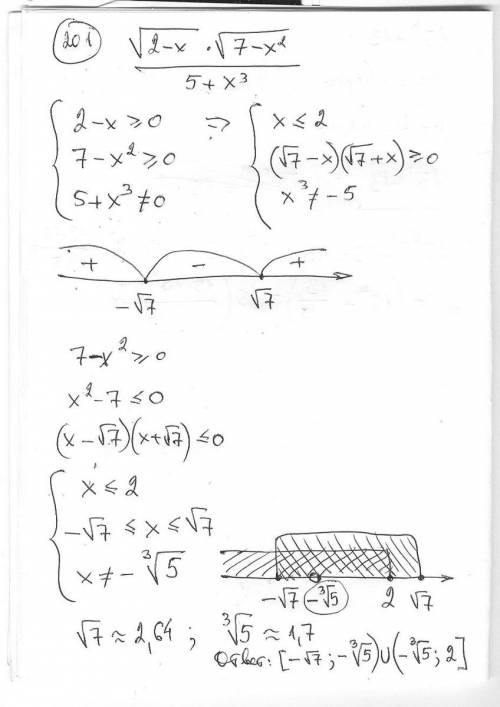 201 √(2-x) · √(7-x²)
5+x³
{ 2-x ≥ 0 ⇒ { x ≤ 2
7-x² ≥ 0 (√7-x)(√7+x) ≥ 0
5+x³ ≠ 0 x³ ≠ -5
+ - +
-√7 √7
7-x² ≥ 0
x²-7 ≤ 0
(x-√7)(x+√7) ≤ 0
{ x ≤ 2
-√7 ≤ x ≤ √7
x ≠ -∛5
-√7 -∛5 2 √7
√7 ≈ 2,64 ; ∛5 ≈ 1,7
Ответ: [-√7; -∛5) ∪ (-∛5; 2]